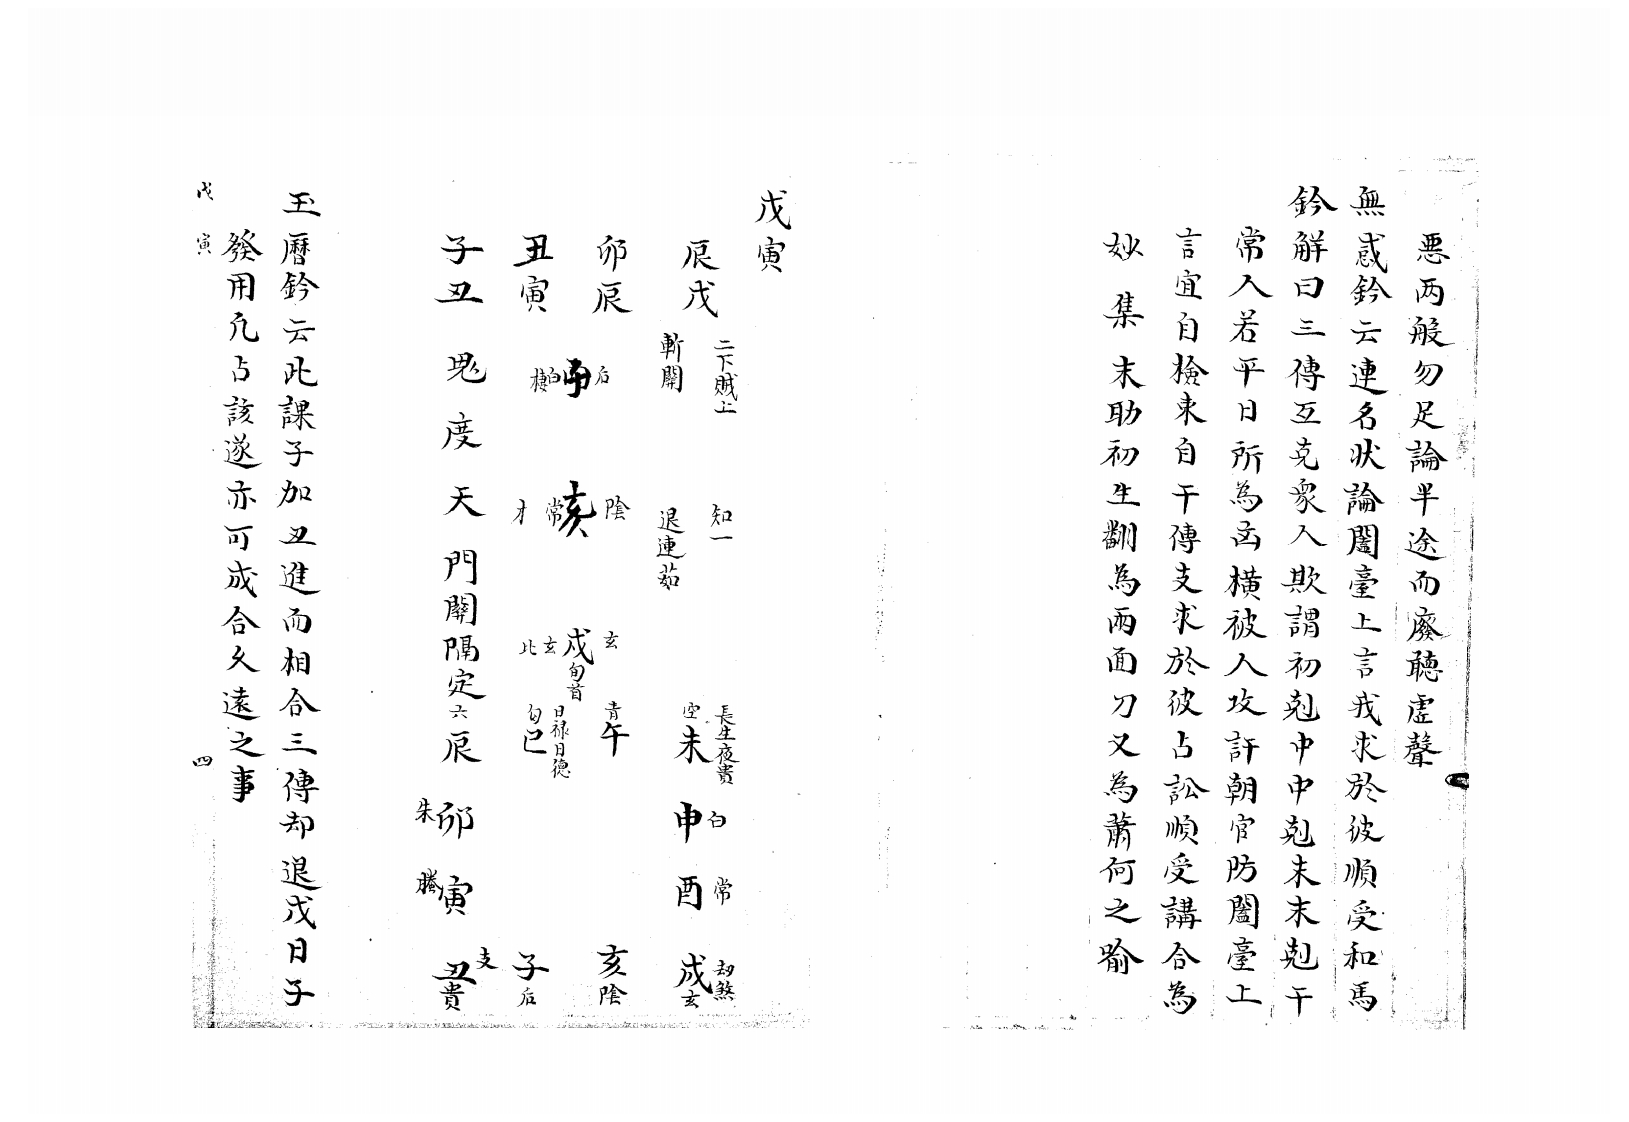 惡两般勿足論半途而廢聴虛聲
無惑鈐云連名状論闔臺上言我求於彼順受和馬
鈐解曰三傳互克衆人欺謂初尅中中尅末末尅干
常人若平日所為凶橫被人攻訐朝官防闔臺上
言宜自檢束自干傳支求於彼占訟順受講合為
妙 集末助初生翻為兩面刀又為蕭何之喻
戊寅
辰戌 二下賊上 斬關
卯辰
丑寅
子丑 魁度天門關隔定
后 子 白
陰 亥 常 才
玄 戌 旬首 玄 北
知一 退連茹
長生夜貴
空未
青午
日禄日德
勾巳
六辰
朱卯
螣寅
支
丑貴
子后
亥陰
劫煞
戌玄
酉常
申白
玉曆鈐云此課子加丑進而相合三傳却退戊日子
發用凡占該遂亦可成合久遠之事
戊寅 四